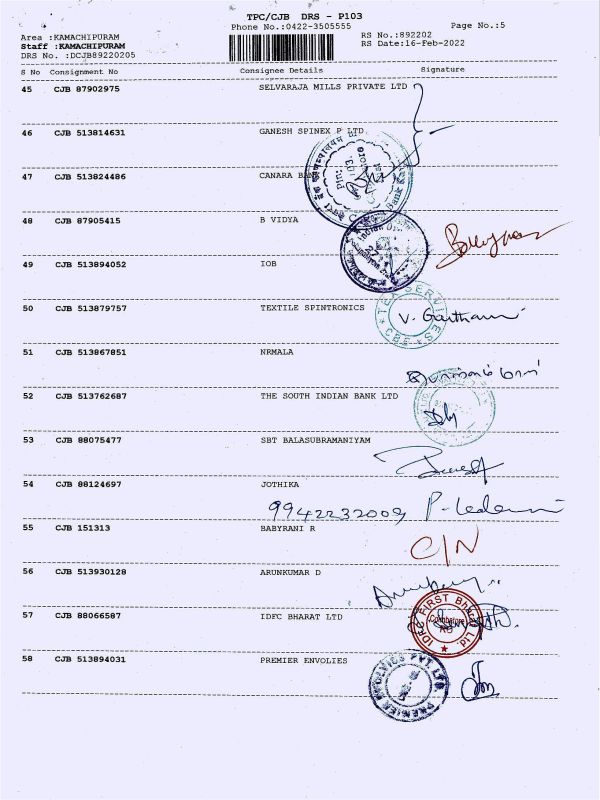 TPC/CJB DRS - P103
Phone No.:0422-3505555
Page No.:5
Area :KAMACHIPURAM
Staff :KAMACHIPURAM
DRS No. :DCJB89220205
RS No.:892202
RS Date:16-Feb-2022
S No Consignment No Consignee Details Signature
45 CJB 87902975 SELVARAJA MILLS PRIVATE LTD
46 CJB 513814631 GANESH SPINEX P LTD
47 CJB 513824486 CANARA BANK
48 CJB 87905415 B VIDYA
49 CJB 513894052 IOB
50 CJB 513879757 TEXTILE SPINTRONICS
TEX SERVICES
CBE
V. Gowthami
51 CJB 513867851 NRMALA
52 CJB 513762687 THE SOUTH INDIAN BANK LTD
53 CJB 88075477 SBT BALASUBRAMANIYAM
54 CJB 88124697 JOTHIKA
9942232009
55 CJB 151313 BABYRANI R
C/N
56 CJB 513930128 ARUNKUMAR D
57 CJB 88066587 IDFC BHARAT LTD
IDFC FIRST Bharat Ltd.
Coimbatore
RO
58 CJB 513894031 PREMIER ENVOLIES
PREMIER ENVOLVICS PVT. LTD.